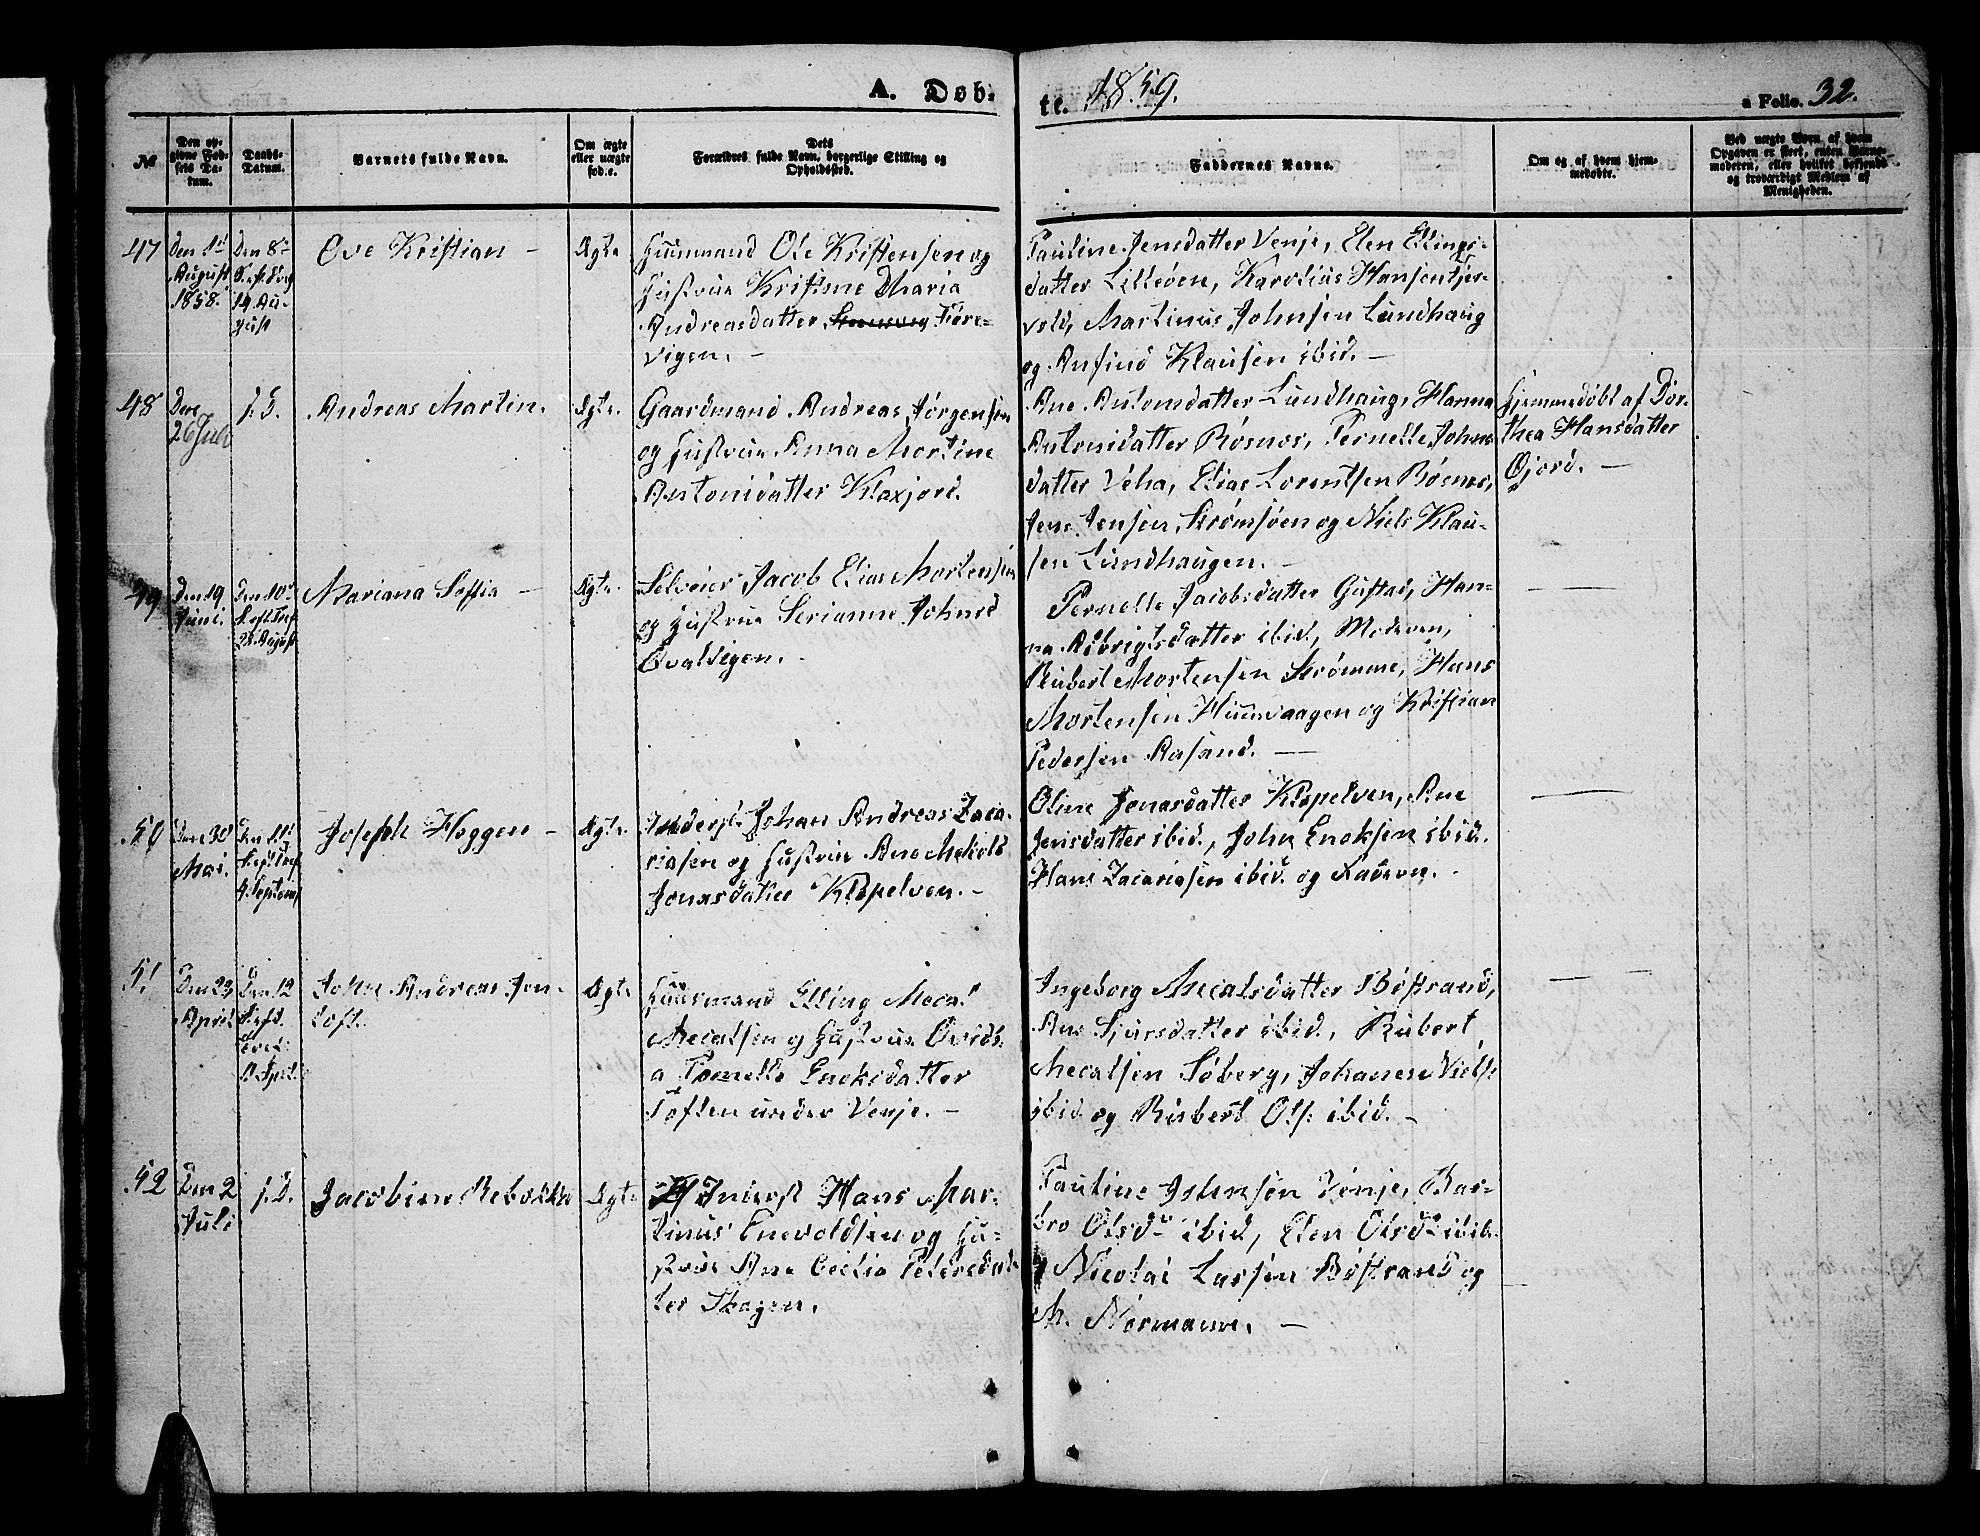 A. Døb-
te. 1859.
a Folio. 32.
№
Den op-
givne Fød-
sels Da-
tum.
Daabs-
Datum.
Barnets fulde Navn.
Om ægte
eller uægte
fød.e.
Dets
Forældres fulde Navn, borgerlige Stilling og
Opholdssted.
Faddernes Navne.
Om og af hvem hjem-
medøbte.
Ved uægte Børn, af hvem
Opgaven er skeet, enten Barne-
moderen, eller hvilket bekjendt
og troværdigt Medlem af
Menigheden.
47
Den 1st
August
1858.
Den 8de
14 Au-
gust
Ove Kristian –
Ægte
Huusmand Ole Kristensen og
Hustrue Kristine Maria
Andreasdatter
vigen. –
Pauline Jensdatter Venje, Elen Ellings-
datter Lilleøen, Karolius Hansen Fjer-
vold, Martinus Johnsen Lundhaug
og Anfind Klausen ibid. –
48
Den
26 Juli
Andreas Martin.
Ægte.
Gaardmand Andreas Jørgensen
og Hustrue Anna Martine
Antonidatter Klaxjord.
Ane Antonsdatter Lundhaug, Hanna
Antonidatter Røsnes, Pernelle Johns
datter Veha, Elias Lorentsen Røsnes,
Jens Jensen, Strømsøen og Niels Klau-
sen Lundhaugen. –
Hjemmedøbt af Dor-
thea Hansdatter
Øjord. –
49
Den 19
Juni.
Den 10de
28 August
Mariana Sofia –
Ægte.
Selveier Jacob Elias Mortensen
og Hustrue Serianne Johnsd
Qvalvigen.
Pernelle Jacobsdatter Gustad, Han-
na Albrigtsdatter ibid, Moderen,
Rubert Mortensen Strømme, Hans
Mortensen Hunsvaagen og Kristian
Pedersen Aasand. –
50
Den 30
Mai.
Den 11t
4 Septemb
Joseph Haggen –
Ægte.
Inderst Johan Andreas Zaca-
riasen og Hustrue Ane
Jonasdatter Klopelven. –
Oline Jonasdatter Klopelven, Ane
Jensdatter ibid., John Enoksen ibid.
Hans Zacariasen ibid. og Faderen. –
51
Den 23
April
Den 12
John Andreas Jen-
toft.
Ægte
Huusmand Elling Mecal
Mecalsen og Hustrue
a Pernelle Enoksdatter
Toften under Venje. –
Ingeborg Mecalsdatter Bøstrand,
Ane Sjursdatter ibid., Rubert
Mecalsen Søberg, Johannes Niels.
ibid og Rubert Ols. ibid. –
52
Den 2
Juli
Jacobine Rebekka
Ægte
Inderst Hans Mar-
tinus Enevoldsen og Hu-
strue Ane Cecilia Petersdat-
ter Skagen.
Pauline Johnsen Venje, Bar-
bro Olsdtr ibid, Elen Olsdtr ibid.
Nicolai Larsen Bøstrand og
M. Normanne. –